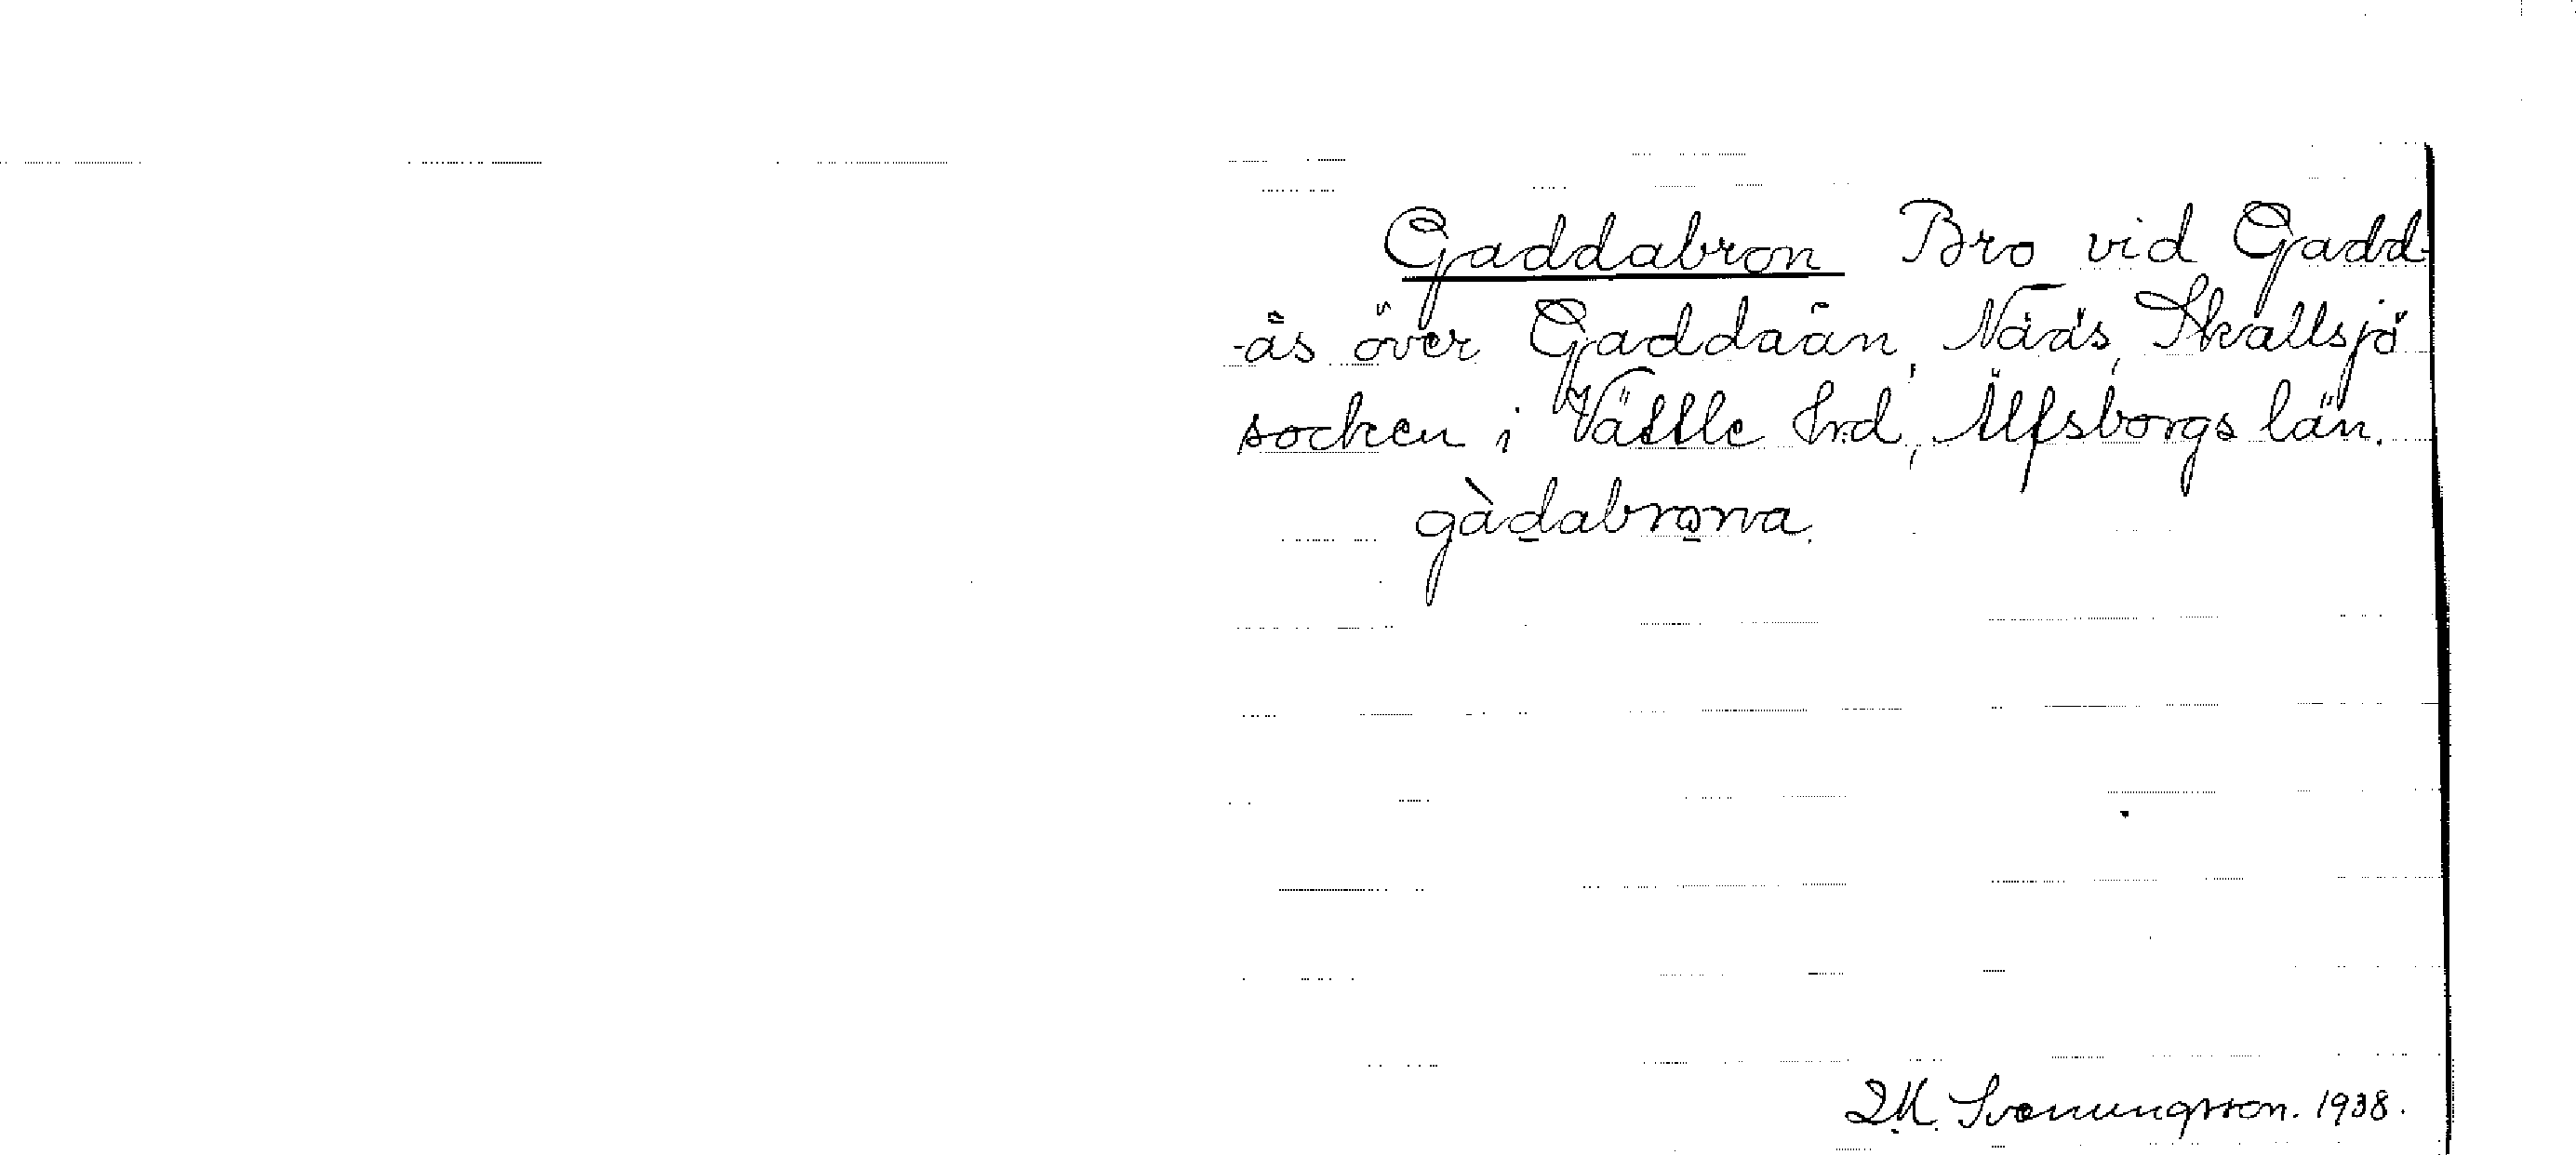 Gaddabron Bro vid Gadd-
-ås över Gaddaån, Nääs, Skallsjö
socken i Vättle hrd, Älfsborgs län.
gàd̲abro̲na.
D.M. Svenungsson. 1938.